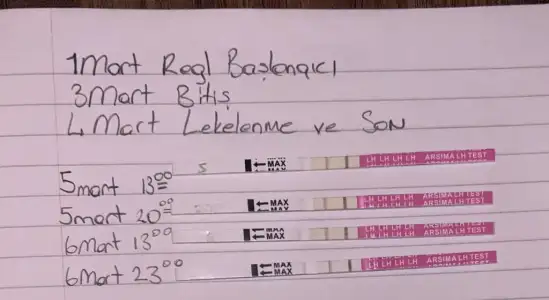 1 Mart Regl Başlangıcı
3 Mart Bitiş
4 Mart Lekelenme ve SON
5 mart 13⁰⁰ S ← MAX LH LH LH LH ARSIMA LH TEST
5 mart 20⁰⁰ ← MAX LH LH LH LH ARSIMA LH TEST
6 Mart 13⁰⁰ ← MAX LH LH LH LH ARSIMA LH TEST
6 Mart 23⁰⁰ ← MAX LH LH LH LH ARSIMA LH TEST